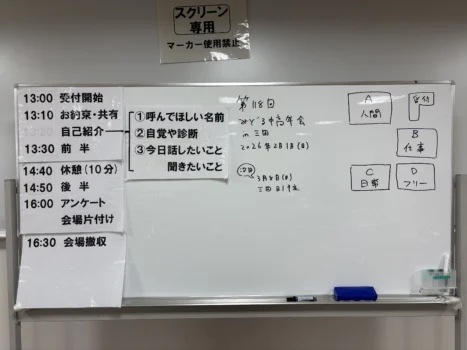 スクリーン
専用
マーカー使用禁止
13:00 受付開始
13:10 お約束・共有
13:20 自己紹介
13:30 前 半
14:40 休憩(10分)
14:50 後 半
16:00 アンケート
会場片付け
16:30 会場撤収
①呼んでほしい名前
②自覚や診断
③今日話したいこと
聞きたいこと
第118回
みどる中高年会
in 三田
2026年2月1日(日)
次回
3月8日(日)
三田
A
人間
受付
B
仕事
C
日常
D
フリー